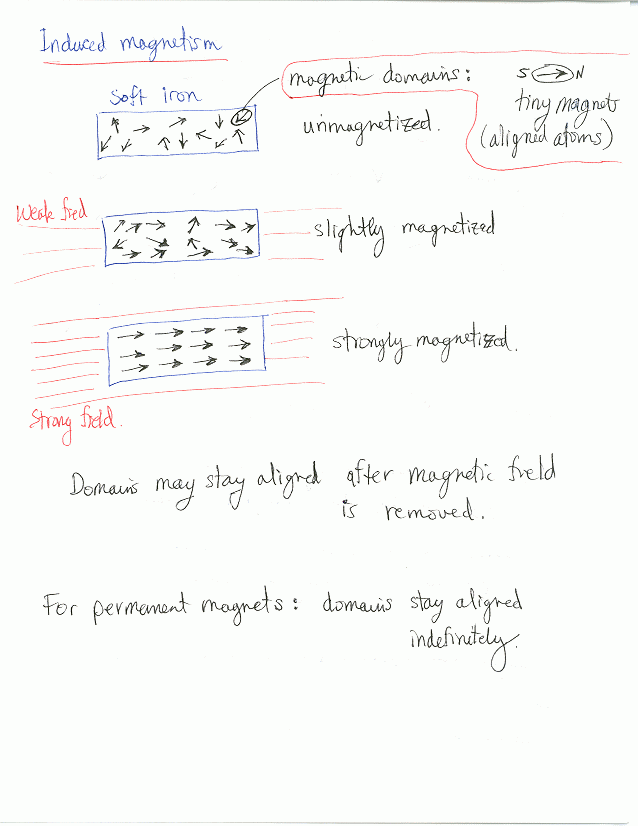 Induced magnetism
soft iron
magnetic domains:
S N
tiny magnets
(aligned atoms)
unmagnetized.
Weak field
slightly magnetized
strongly magnetized.
Strong field.
Domains may stay aligned after magnetic field
is removed.
For permenent magnets: domains stay aligned
indefinitely.